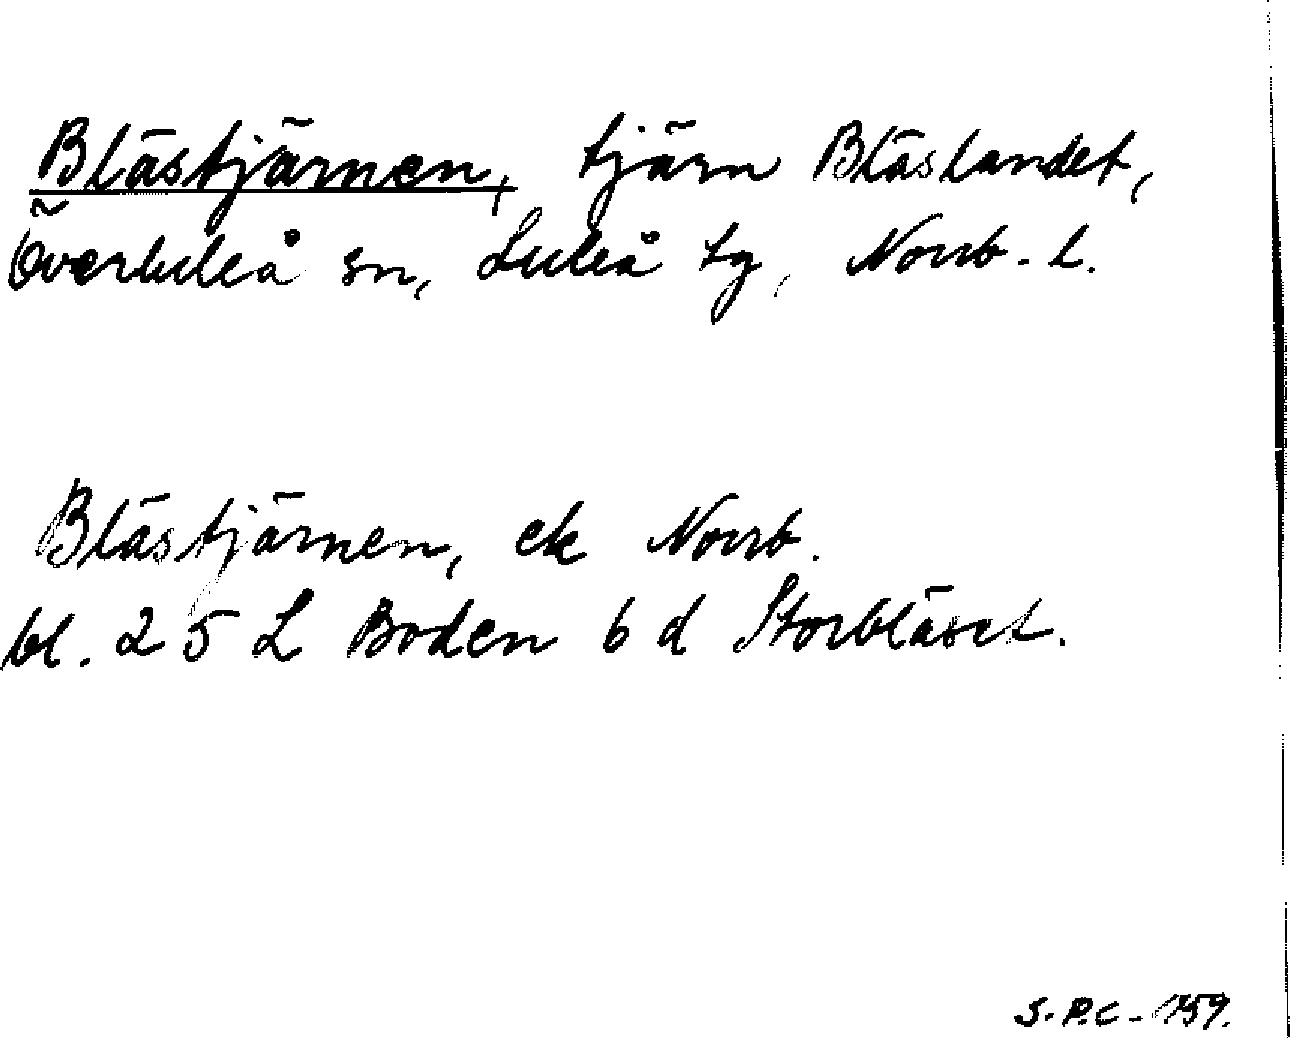 Blästjärnen, tjärn Bläslandet,
Överluleå sn, Luleå tg, Norrb. l.
Blästjärnen, ek Norrb.
bl. 25 L Boden 6 d Storbläset.
S.P.C. 1959.